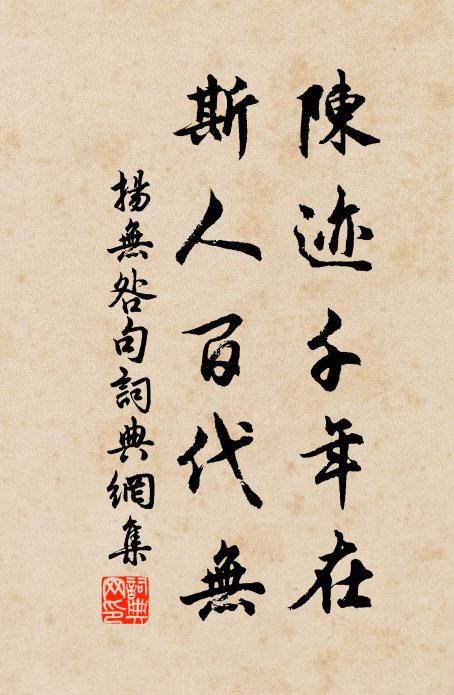 陳迹千年在
斯人百代無
揚無咎句詞典網集
詞典
网印